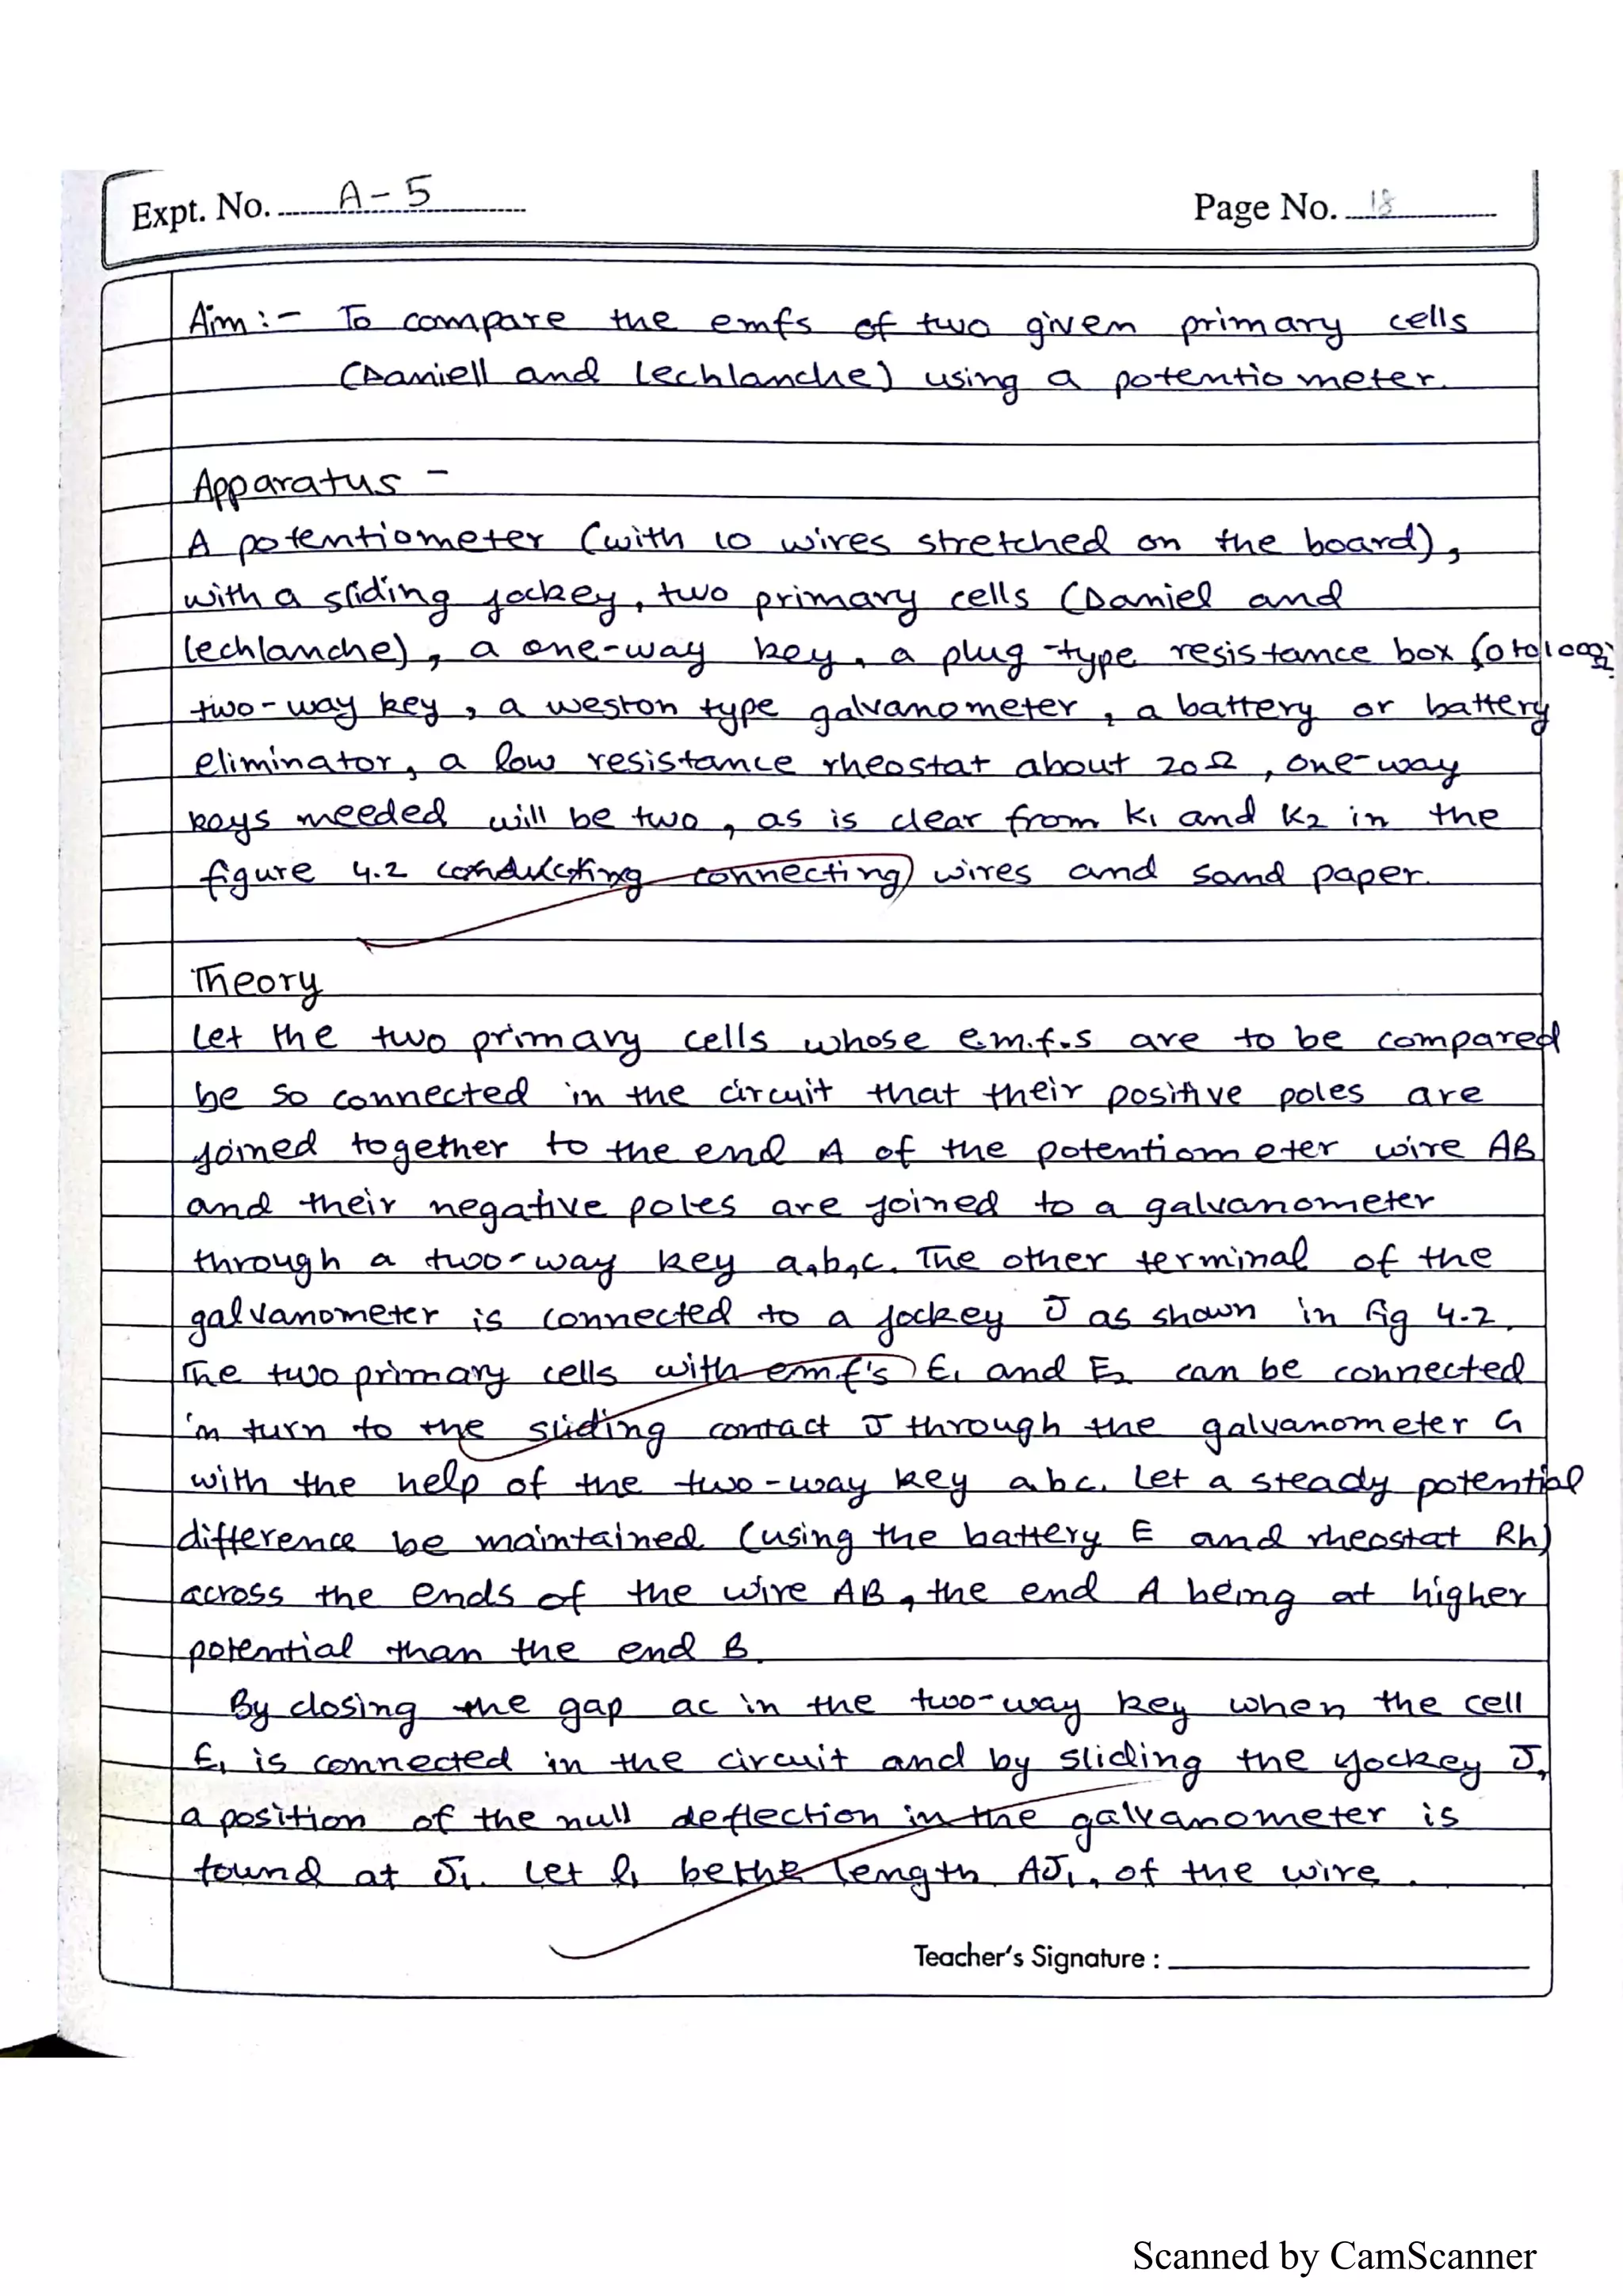 Expt. No. A-5
Page No. 18
Aim :- To compare the emfs of two given primary cells
(Daniell and Lechlanche) using a potentiometer.
Apparatus -
A potentiometer (with 10 wires stretched on the board),
with a sliding jockey, two primary cells (Daniel and
Lechlanche), a one-way key, a plug-type resistance box (0 to 100Ω)
two-way key, a weston type galvanometer, a battery or battery
eliminator, a low resistance rheostat about 20Ω, one-way
keys needed will be two, as is clear from K1 and K2 in the
figure 4.2 connecting wires and sand paper.
Theory
Let the two primary cells whose e.m.f.s are to be compared
be so connected in the circuit that their positive poles are
joined together to the end A of the potentiometer wire AB
and their negative poles are joined to a galvanometer
through a two-way key a,b,c. The other terminal of the
galvanometer is connected to a jockey J as shown in fig 4.2.
The two primary cells with emf's E1 and E2 can be connected
in turn to the sliding contact J through the galvanometer G
with the help of the two-way key abc. Let a steady potential
difference be maintained (using the battery E and rheostat Rh)
across the ends of the wire AB, the end A being at higher
potential than the end B.
By closing the gap ac in the two-way key when the cell
E1 is connected in the circuit and by sliding the jockey J,
a position of the null deflection in the galvanometer is
found at J1. Let l1 be the length AJ1, of the wire.
Teacher's Signature :
Scanned by CamScanner